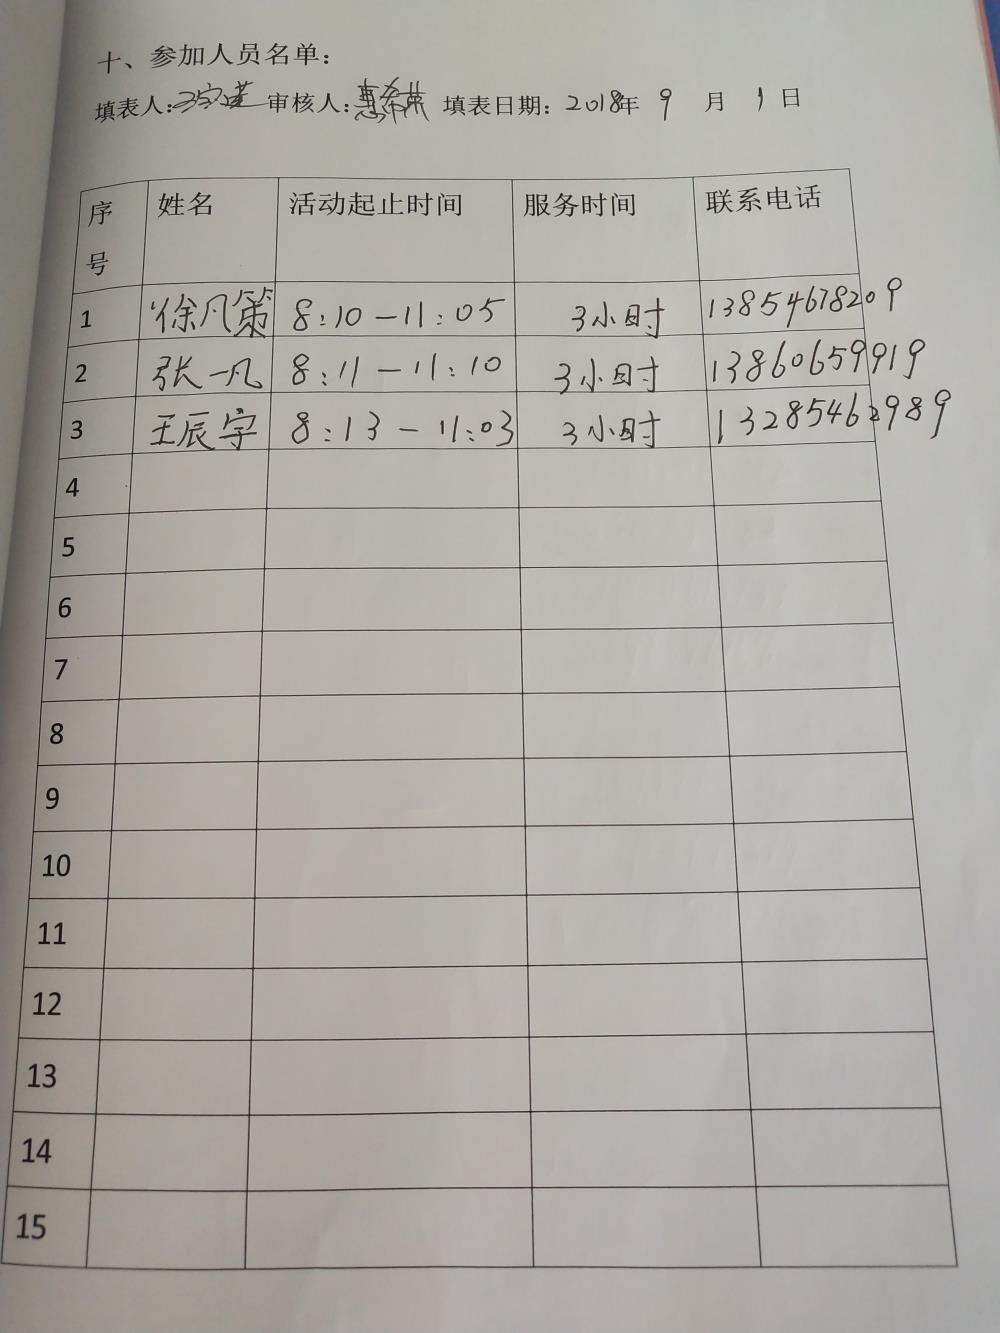 十、参加人员名单：
填表人： 审核人： 填表日期：2018年 9 月 1 日
序号 姓名 活动起止时间 服务时间 联系电话
1 徐凡策 8:10－11:05 3小时 13854678209
2 张一凡 8:11－11:10 3小时 13860659919
3 王辰宇 8:13－11:03 3小时 13285462989
4
5
6
7
8
9
10
11
12
13
14
15